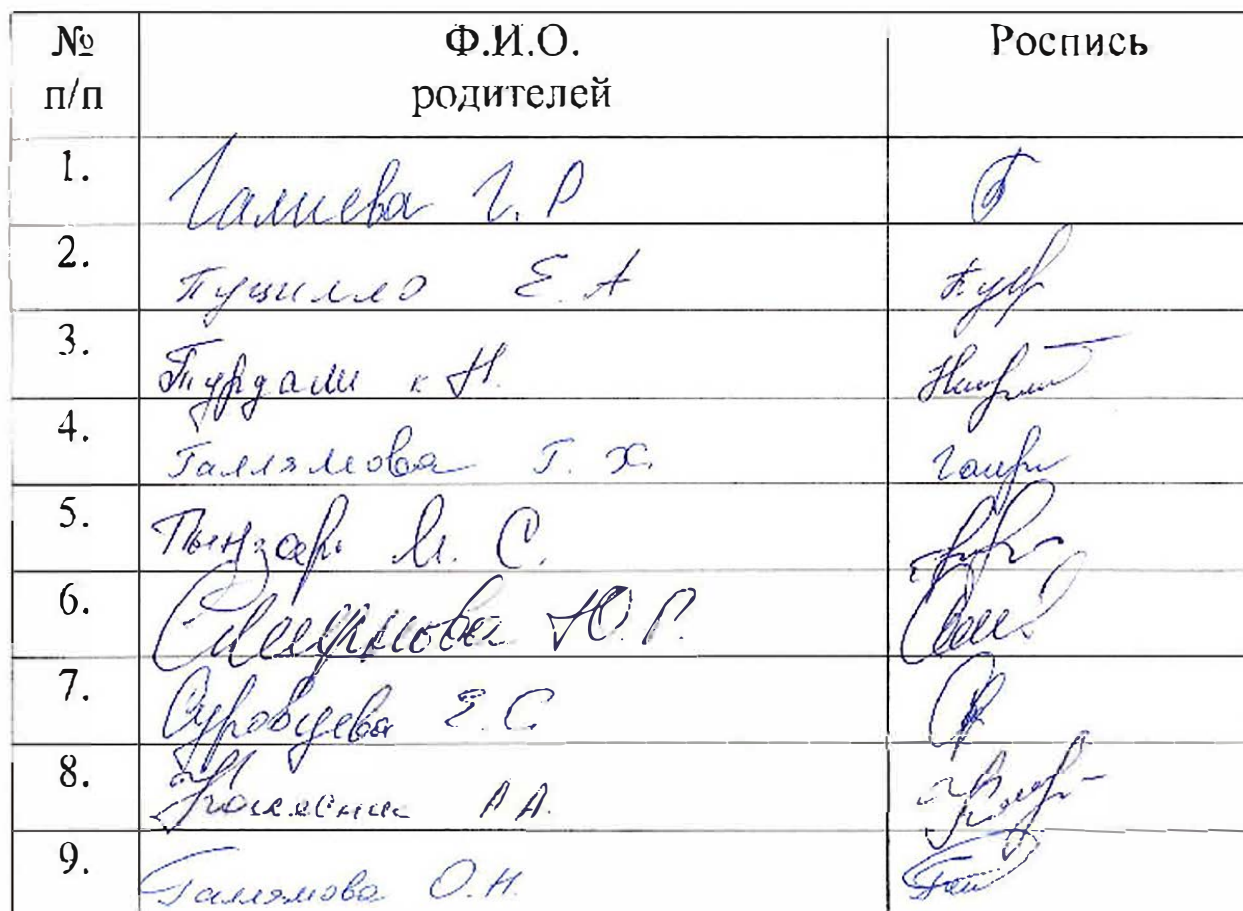 № п/п Ф.И.О. родителей Роспись
1. Галиева Г. Р
2. Пушилло Е. А
3. Турдали к Н.
4. Галлямова Г. Х.
5. Пынзарь М. С.
6. Ю. Р.
7. Суровцева Е. С
8. А А.
9. Галлямова О. Н.